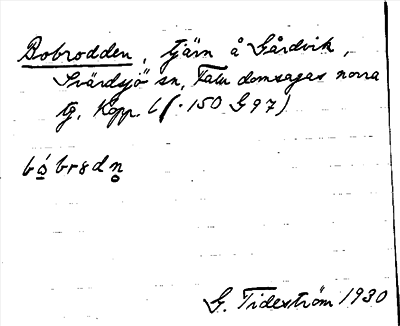 Bobrodden, tjärn å Gårdvik,
Svärdsjö sn, Falu domsagas norra
tg, Kopp. l (150 G 97)
bó̲brsdn̥
G. Tideström 1930